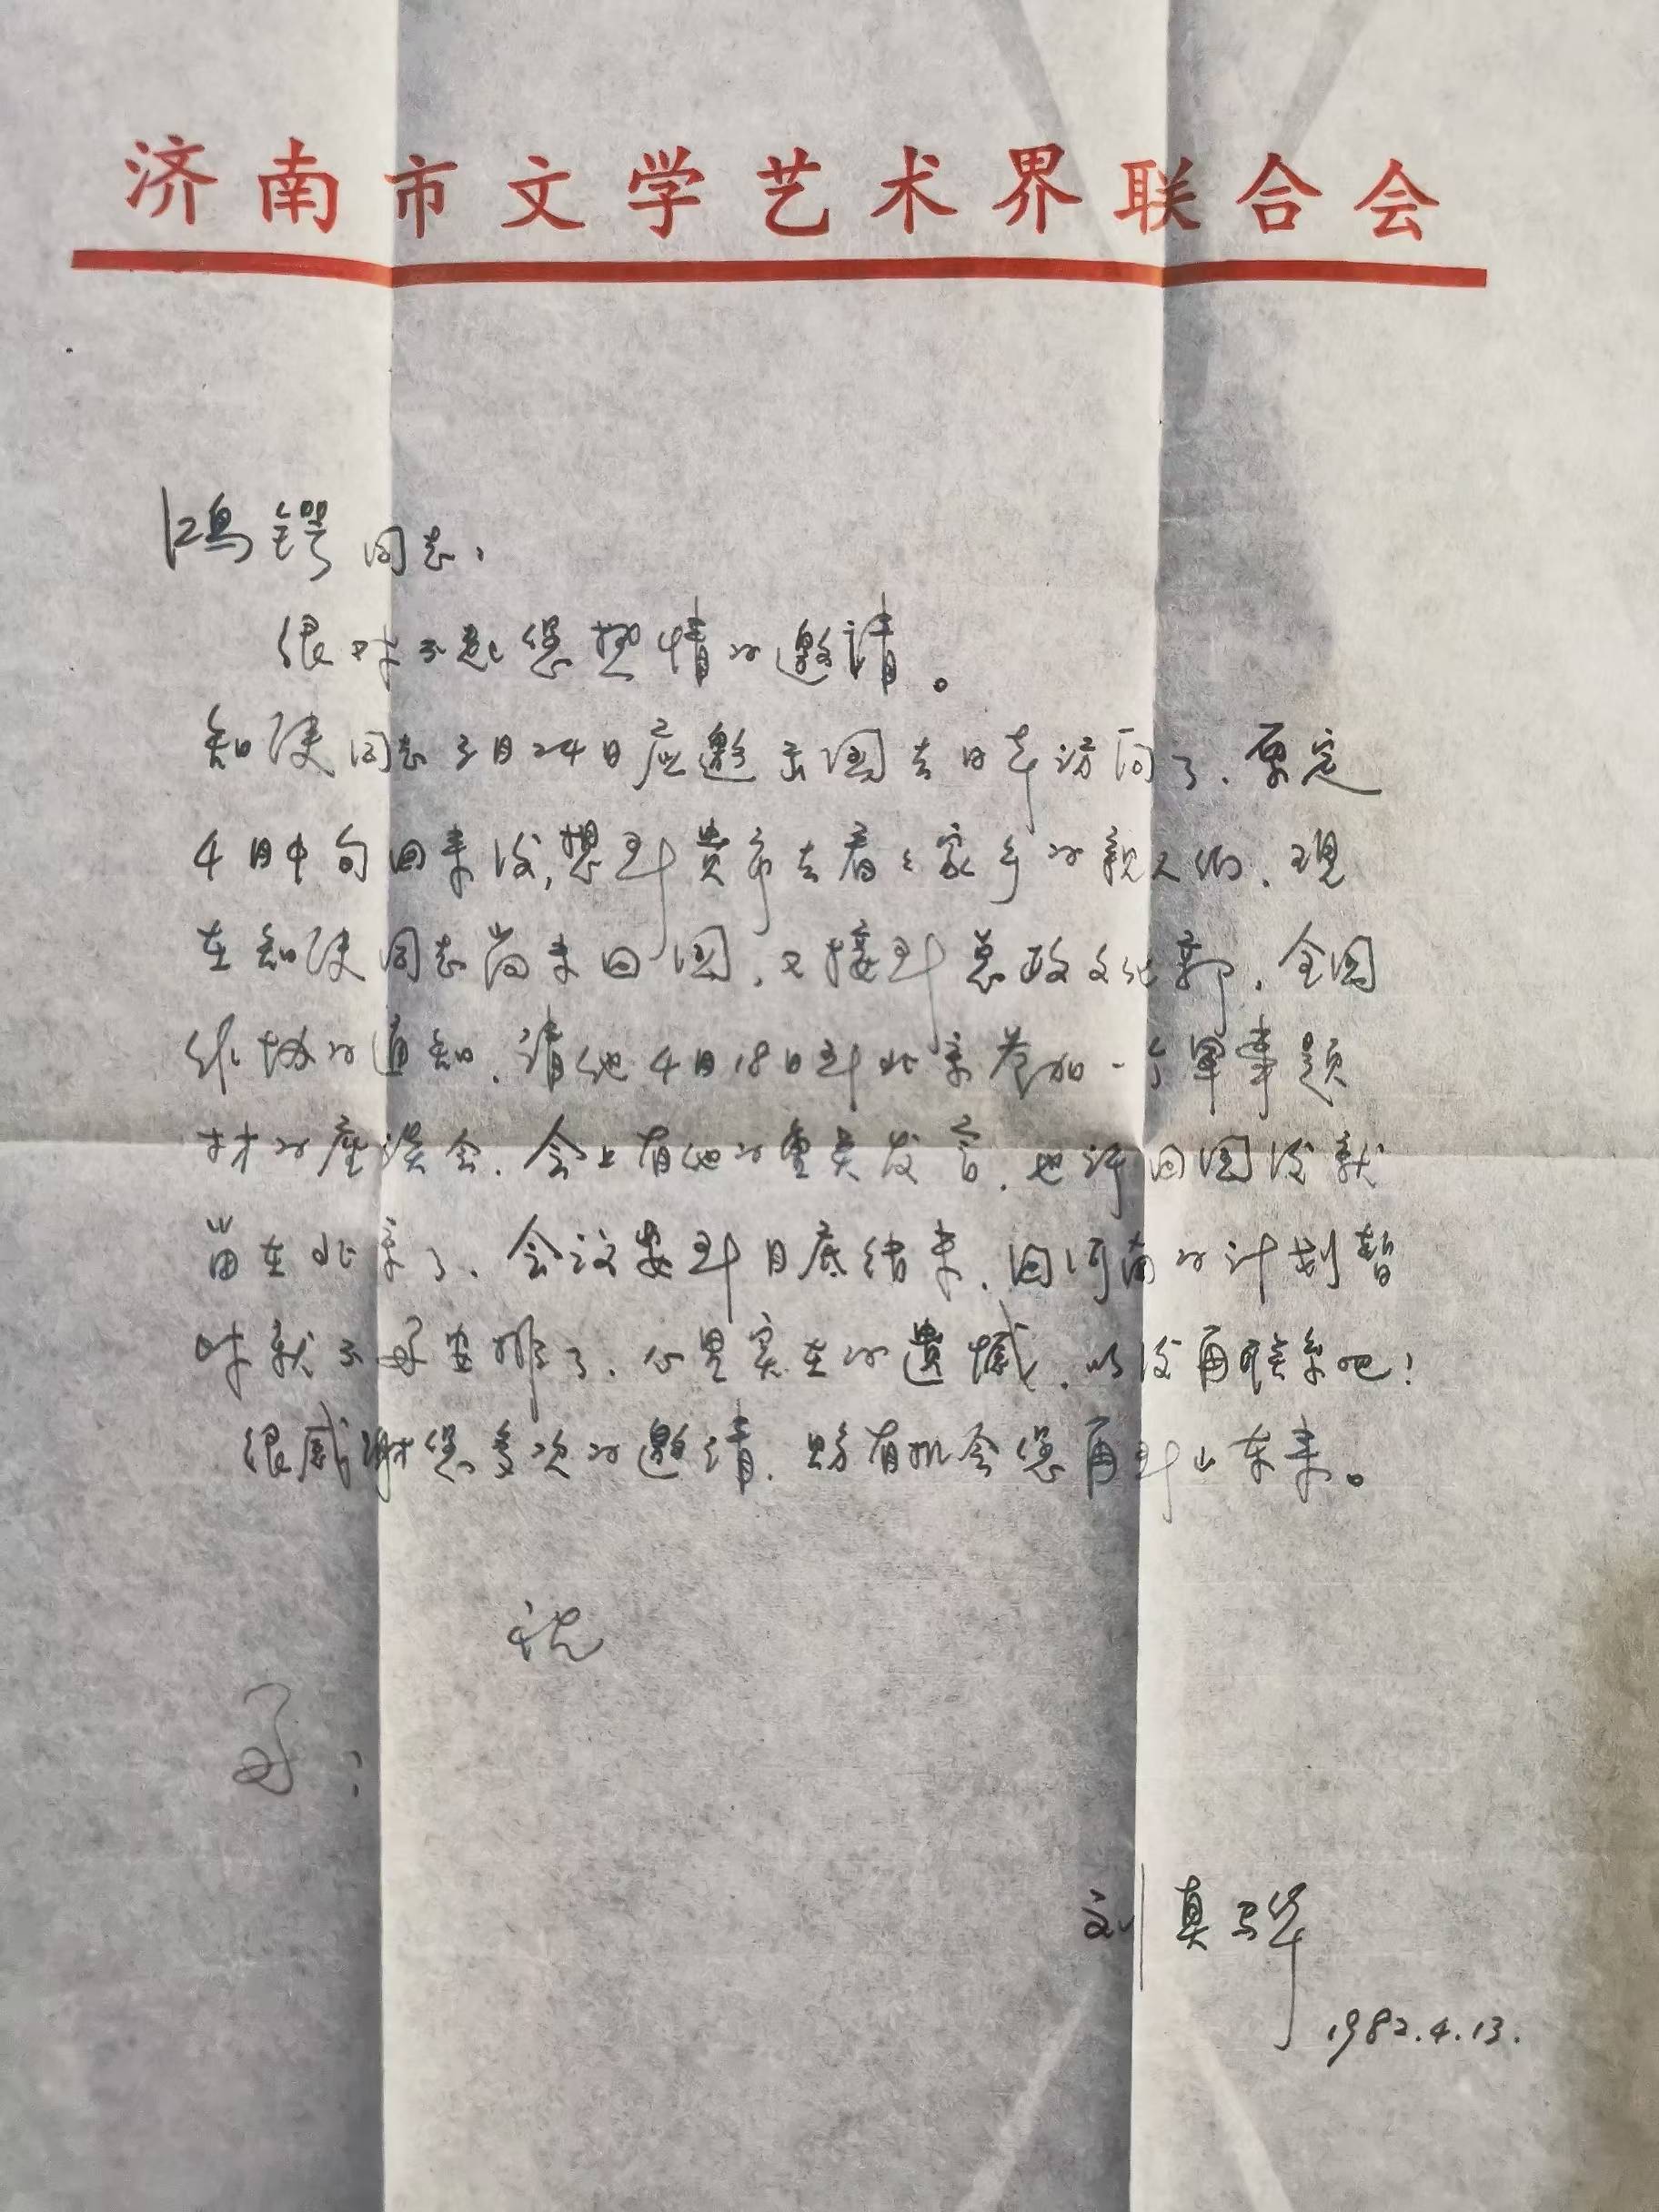 济南市文学艺术界联合会
鸿锷同志：
很对不起您热情的邀请。
知侠同志3月24日应邀出国去日本访问了，原定
4月中旬回来后，想到贵市去看看家乡的亲人们，现
在知侠同志尚未回国，又接到总政文化部，全国
作协的通知，请他4月18日到北京参加一个军事题
材的座谈会，会上有他的重点发言，也许回国后就
留在北京了，会议要到月底结束，回河南的计划暂
时就不好安排了，心里实在的遗憾，以后再联系吧！
很感谢您多次的邀请，盼有机会您再到山东来。
祝
好！
刘真骅
1982.4.13.